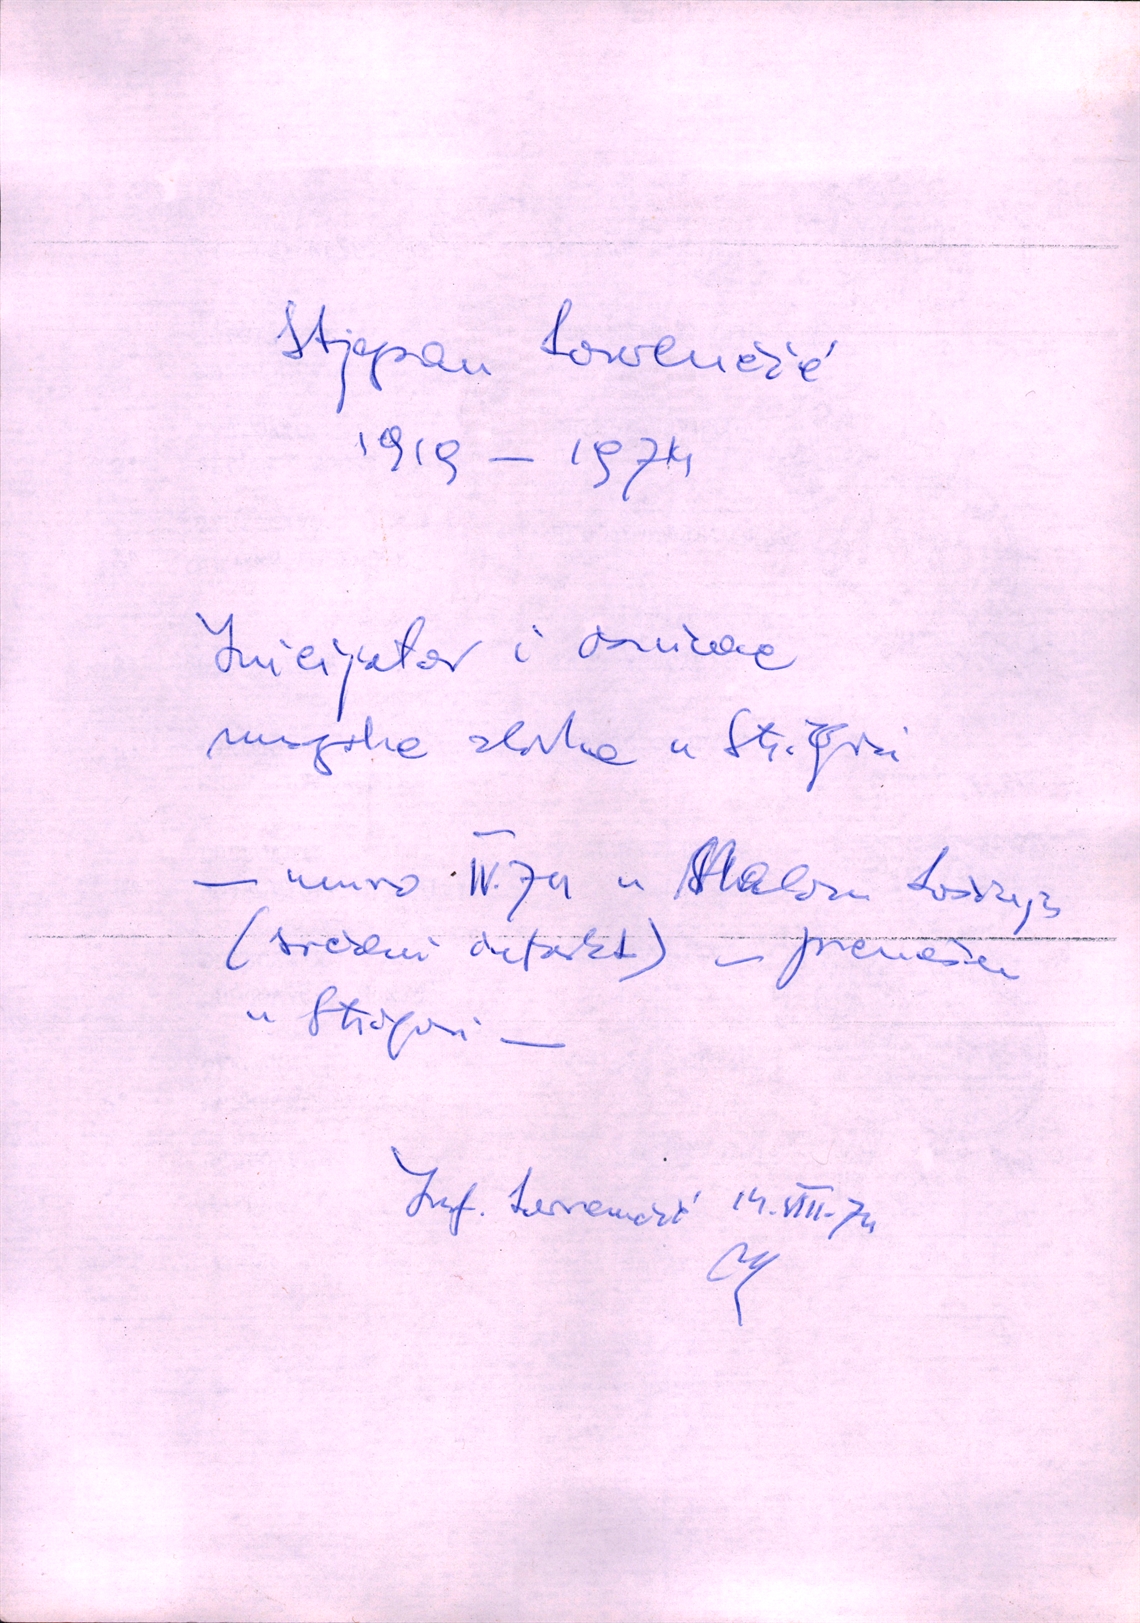 Stjepan Lovrenčić
1919 – 1974
Inicijator i osnivač
muzičke zbirke u Štrigovi
– umro IV. 74 u Malom Lošinju
(srčani infarkt) – prenešen
u Štrigovi –
Inf. Lovrenčić 14. VIII. 74